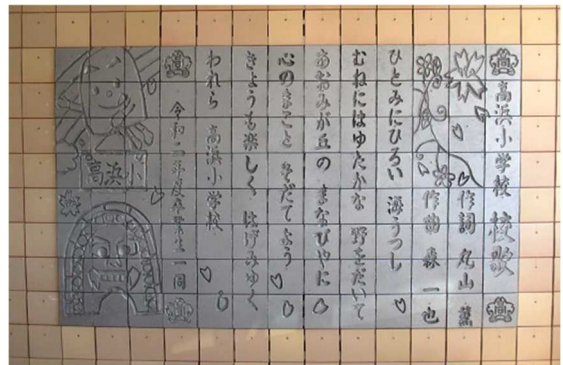 高浜小学校 校歌
作詞 丸山 薫
作曲 森 一也
ひとみにひろい 海うつし
むねにはゆたかな 野をだいて
あおみが丘の まなびやに
心のまこと そだてよう
きょうも楽しく はげみゆく
われら 高浜小学校
令和二年度卒業生一同
高浜小